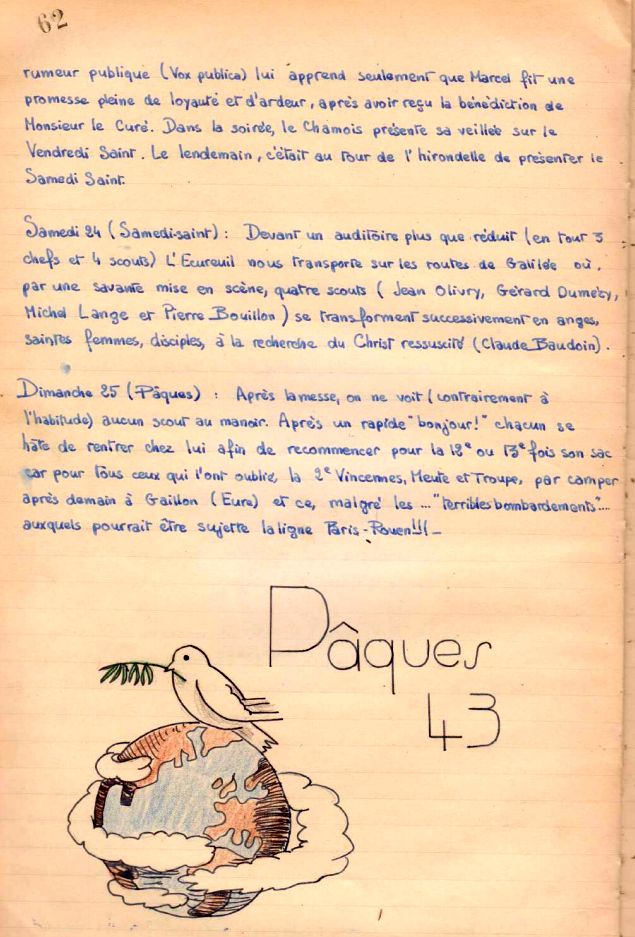 62
rumeur publique (Vox publica) lui apprend seulement que Marcel fit une
promesse pleine de loyauté et d'ardeur, après avoir reçu la bénédiction de
Monsieur le Curé. Dans la soirée, le Chamois présente sa veillée sur le
Vendredi Saint. Le lendemain, c'était au tour de l'hirondelle de présenter le
Samedi Saint.
Samedi 24 (Samedi-saint) : Devant un auditoire plus que réduit (en tout 3
chefs et 4 scouts) L'Ecureuil nous transporte sur les routes de Galilée où,
par une savante mise en scène, quatre scouts (Jean Olivry, Gérard Dumetz,
Michel Lange et Pierre Bouillon) se transforment successivement en anges,
saintes femmes, disciples, à la recherche du Christ ressuscité (Claude Baudoin).
Dimanche 25 (Pâques) : Après la messe, on ne voit (contrairement à
l'habitude) aucun scout au manoir. Après un rapide "bonjour!" chacun se
hâte de rentrer chez lui afin de recommencer pour la 12e ou 13e fois son sac
car pour tous ceux qui l'ont oublié, la 2e Vincennes, Meute et Troupe, par camper
après demain à Gaillon (Eure) et ce, malgré les ... "terribles bombardements"....
auxquels pourrait être sujette la ligne Paris-Rouen!!! -
Pâques
43